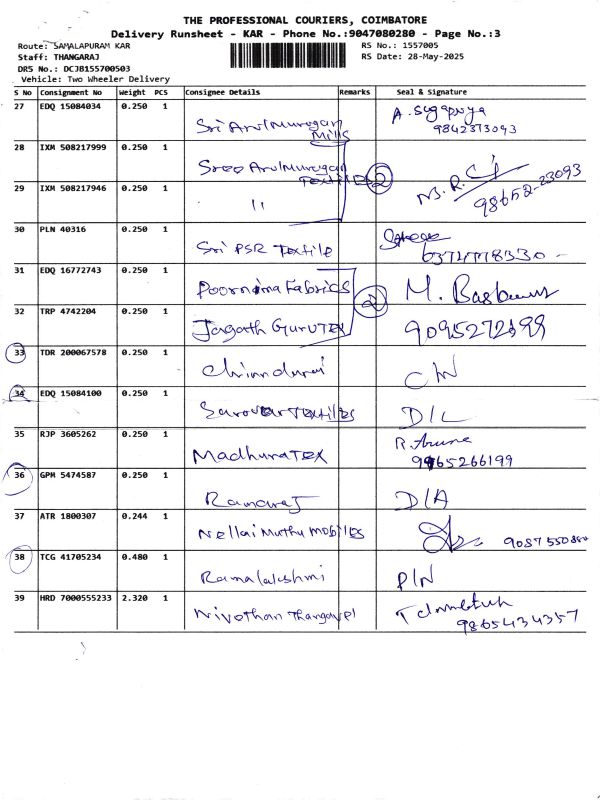 THE PROFESSIONAL COURIERS, COIMBATORE
Delivery Runsheet - KAR - Phone No.:9047080280 - Page No.:3
Route: SAMALAPURAM KAR RS No.: 1557005
Staff: THANGARAJ RS Date: 28-May-2025
DRS No.: DCJB155700503
Vehicle: Two Wheeler Delivery
S No Consignment No Weight PCS Consignee Details Remarks Seal & Signature
27 EDQ 15084034 0.250 1 Sri Arulmurugan Mills A. Sugapriya
9842373093
28 IXM 508217999 0.250 1 Sree Arulmurugan Textiles 2
29 IXM 508217946 0.250 1 " 98652-23093
30 PLN 40316 0.250 1 Sri PSR Textile
31 EDQ 16772743 0.250 1 Poornima Fabrics 2 M.
32 TRP 4742204 0.250 1 Jagath Guru Tex
33 TDR 200067578 0.250 1 Chinnadurai C/N
34 EDQ 15084100 0.250 1 Sarovar Textiles D/L
35 RJP 3605262 0.250 1 Madhura Tex R. Aruna
9965266199
36 GPM 5474587 0.250 1 Ramaraj D/A
37 ATR 1800307 0.244 1 Nellai Muthu Mobiles
38 TCG 41705234 0.480 1 Ramalakshmi P/N
39 HRD 7000555233 2.320 1 Nivethan Thangavel
9865434357